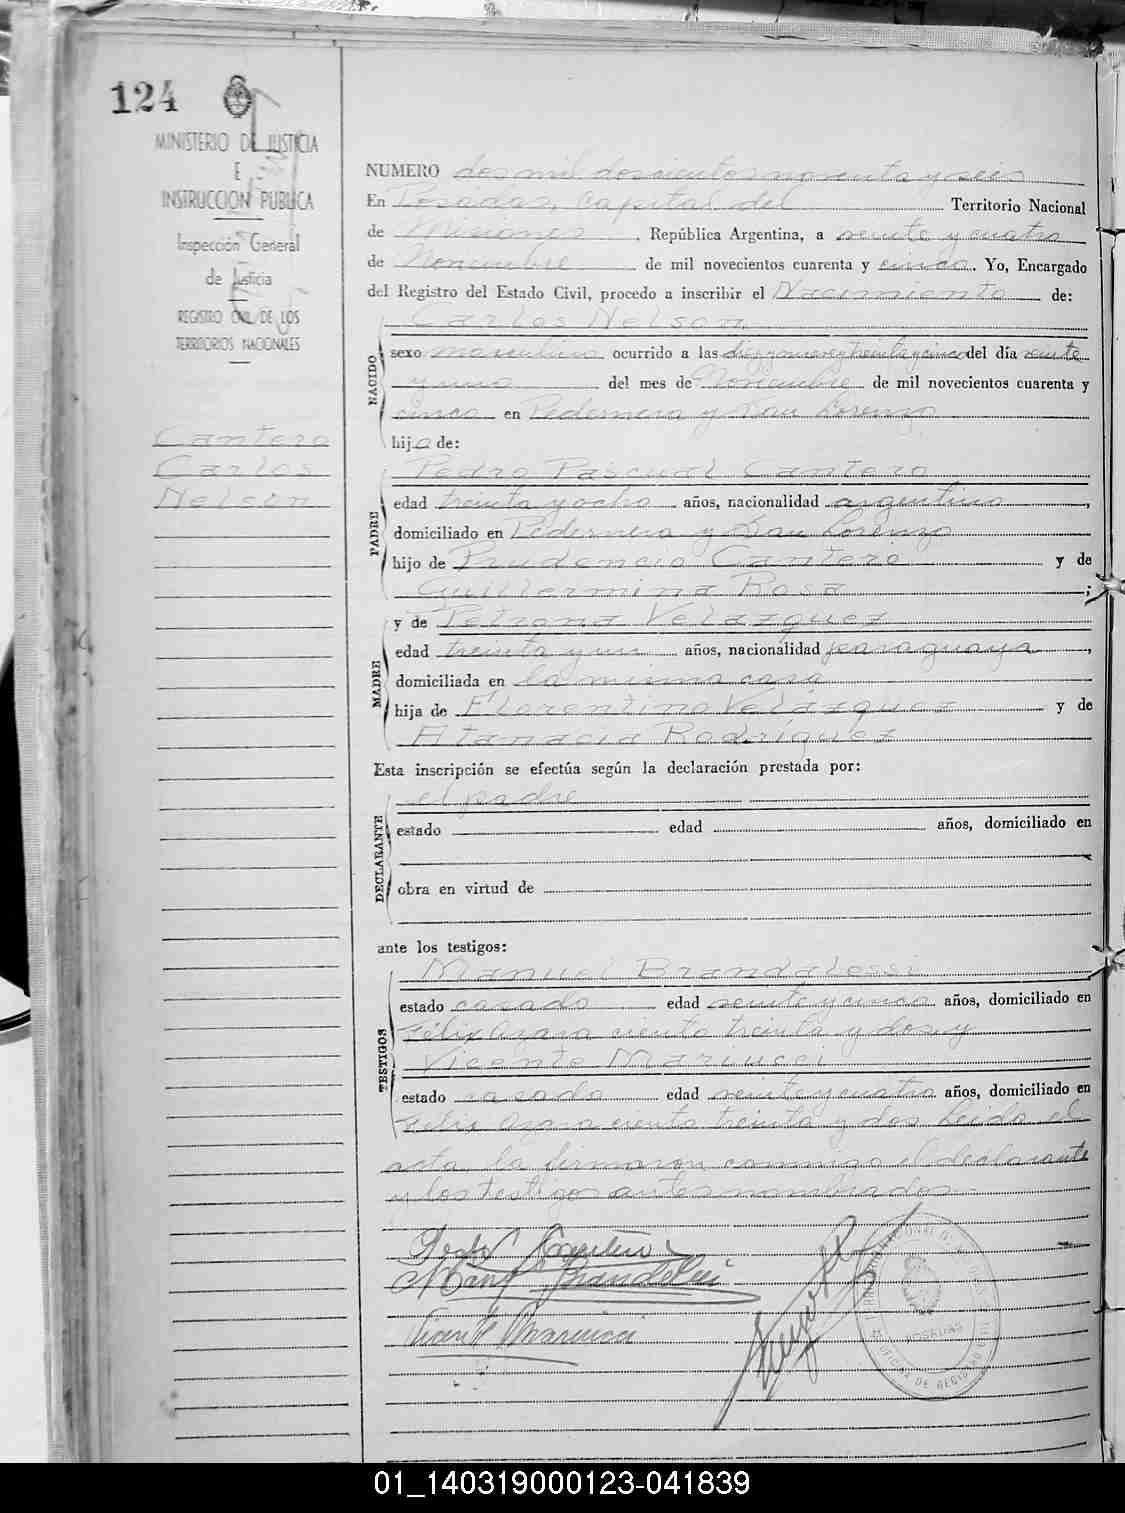 124
MINISTERIO DE JUSTICIA
E
INSTRUCCION PUBLICA
Inspección General
de Justicia
REGISTRO CIVIL DE LOS
TERRITORIOS NACIONALES
Cantero
Carlos
Nelson
NUMERO dos mil doscientos noventa y seis
En Posadas, Capital del Territorio Nacional
de Misiones, República Argentina, a veinte y cuatro
de Noviembre de mil novecientos cuarenta y cinco. Yo, Encargado
del Registro del Estado Civil, procedo a inscribir el Nacimiento de:
NACIDO
Carlos Nelson
sexo masculino ocurrido a las diez y nueve y treinta y cinco del día veinte
y uno del mes de Noviembre de mil novecientos cuarenta y
cinco en Pedernera y San Lorenzo
hijo de:
PADRE
Pedro Pascual Cantero
edad treinta y ocho años, nacionalidad argentino,
domiciliado en Pedernera y San Lorenzo
hijo de Prudencio Cantero y de
Guillermina Rosa;
MADRE
y de Petrona Velazquez
edad treinta y un años, nacionalidad paraguaya,
domiciliada en la misma casa
hija de Florentino Velázquez y de
Atanacia Rodríguez
Esta inscripción se efectúa según la declaración prestada por:
DECLARANTE
el padre
estado edad años, domiciliado en
obra en virtud de
ante los testigos:
TESTIGOS
Manuel Brandalessi
estado casado edad veinte y cinco años, domiciliado en
Félix Azara ciento treinta y dos y
Vicente Mariucci
estado casado edad veinte y cuatro años, domiciliado en
Félix Azara ciento treinta y dos Leida el
acta, la firmaron conmigo el declarante
y los testigos antes nombrados.
Vicente Mariucci
POSADAS
OFICINA DE REGISTRO CIVIL
01_140319000123-041839